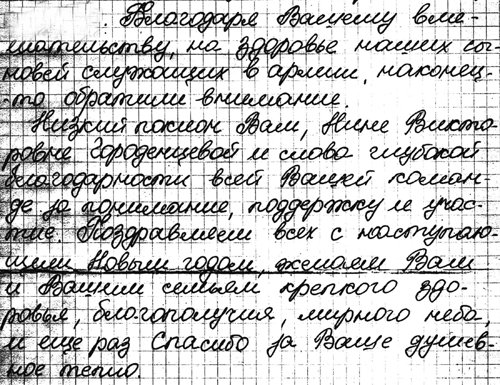 . Благодаря Вашему вме-
шательству, на здоровье наших сы-
новей служащих в армии, наконец-
-то обратили внимание.
Низкий поклон Вам, Нине Викто-
ровне Городенцевой и слова глубокой
благодарности всей Вашей коман-
де за понимание, поддержку и учас-
тие. Поздравляем всех с наступаю-
щим Новым годом, желаем Вам
и Вашим семьям крепкого здо-
ровья, благополучия, мирного неба,
и еще раз Спасибо за Ваше душев-
ное тепло.